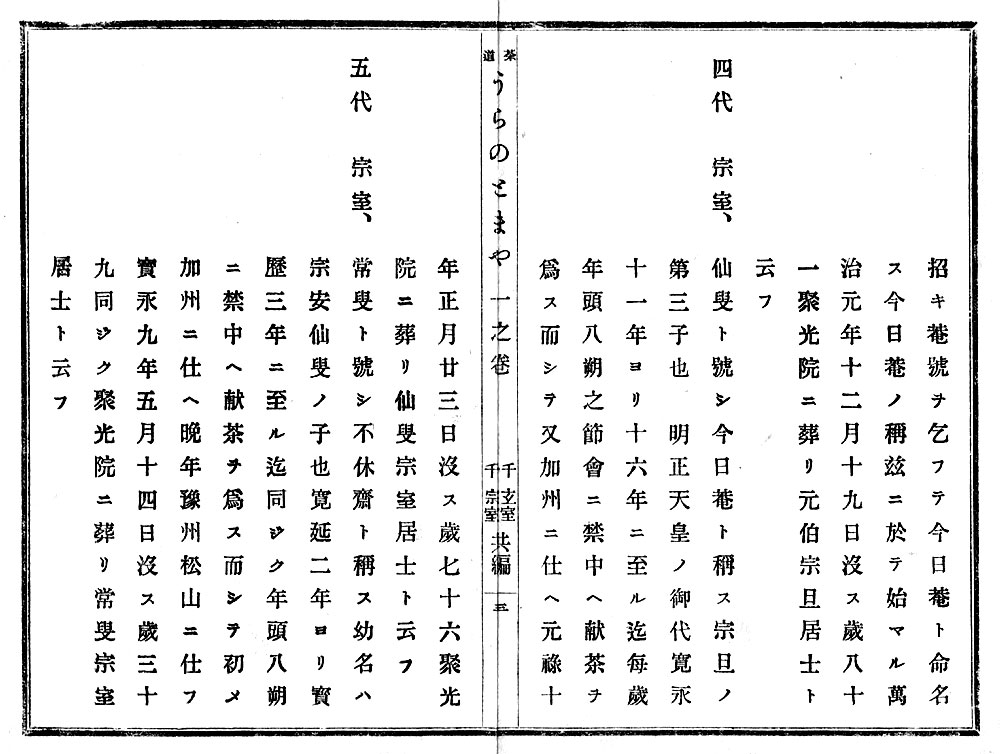 招キ菴號ヲ乞フテ今日菴ト命名
ス今日菴ノ稱兹ニ於テ始マル萬
治元年十二月十九日沒ス歲八十
一聚光院ニ葬リ元伯宗旦居士ト
云フ
四代 宗室、
仙叟ト號シ今日菴ト稱ス宗旦ノ
第三子也 明正天皇ノ御代寬永
十一年ヨリ十六年ニ至ル迄每歲
年頭八朔之節會ニ禁中ヘ献茶ヲ
爲ス而シテ又加州ニ仕ヘ元祿十
茶道 うらのとまや 一之卷 千玄室 千宗室 共編 三
年正月廿三日沒ス歲七十六聚光
院ニ葬リ仙叟宗室居士ト云フ
五代 宗室、
常叟ト號シ不休齋ト稱ス幼名ハ
宗安仙叟ノ子也寬延二年ヨリ寳
歷三年ニ至ル迄同ジク年頭八朔
ニ禁中ヘ献茶ヲ爲ス而シテ初メ
加州ニ仕ヘ晩年豫州松山ニ仕フ
寶永九年五月十四日沒ス歲三十
九同ジク聚光院ニ葬リ常叟宗室
居士ト云フ